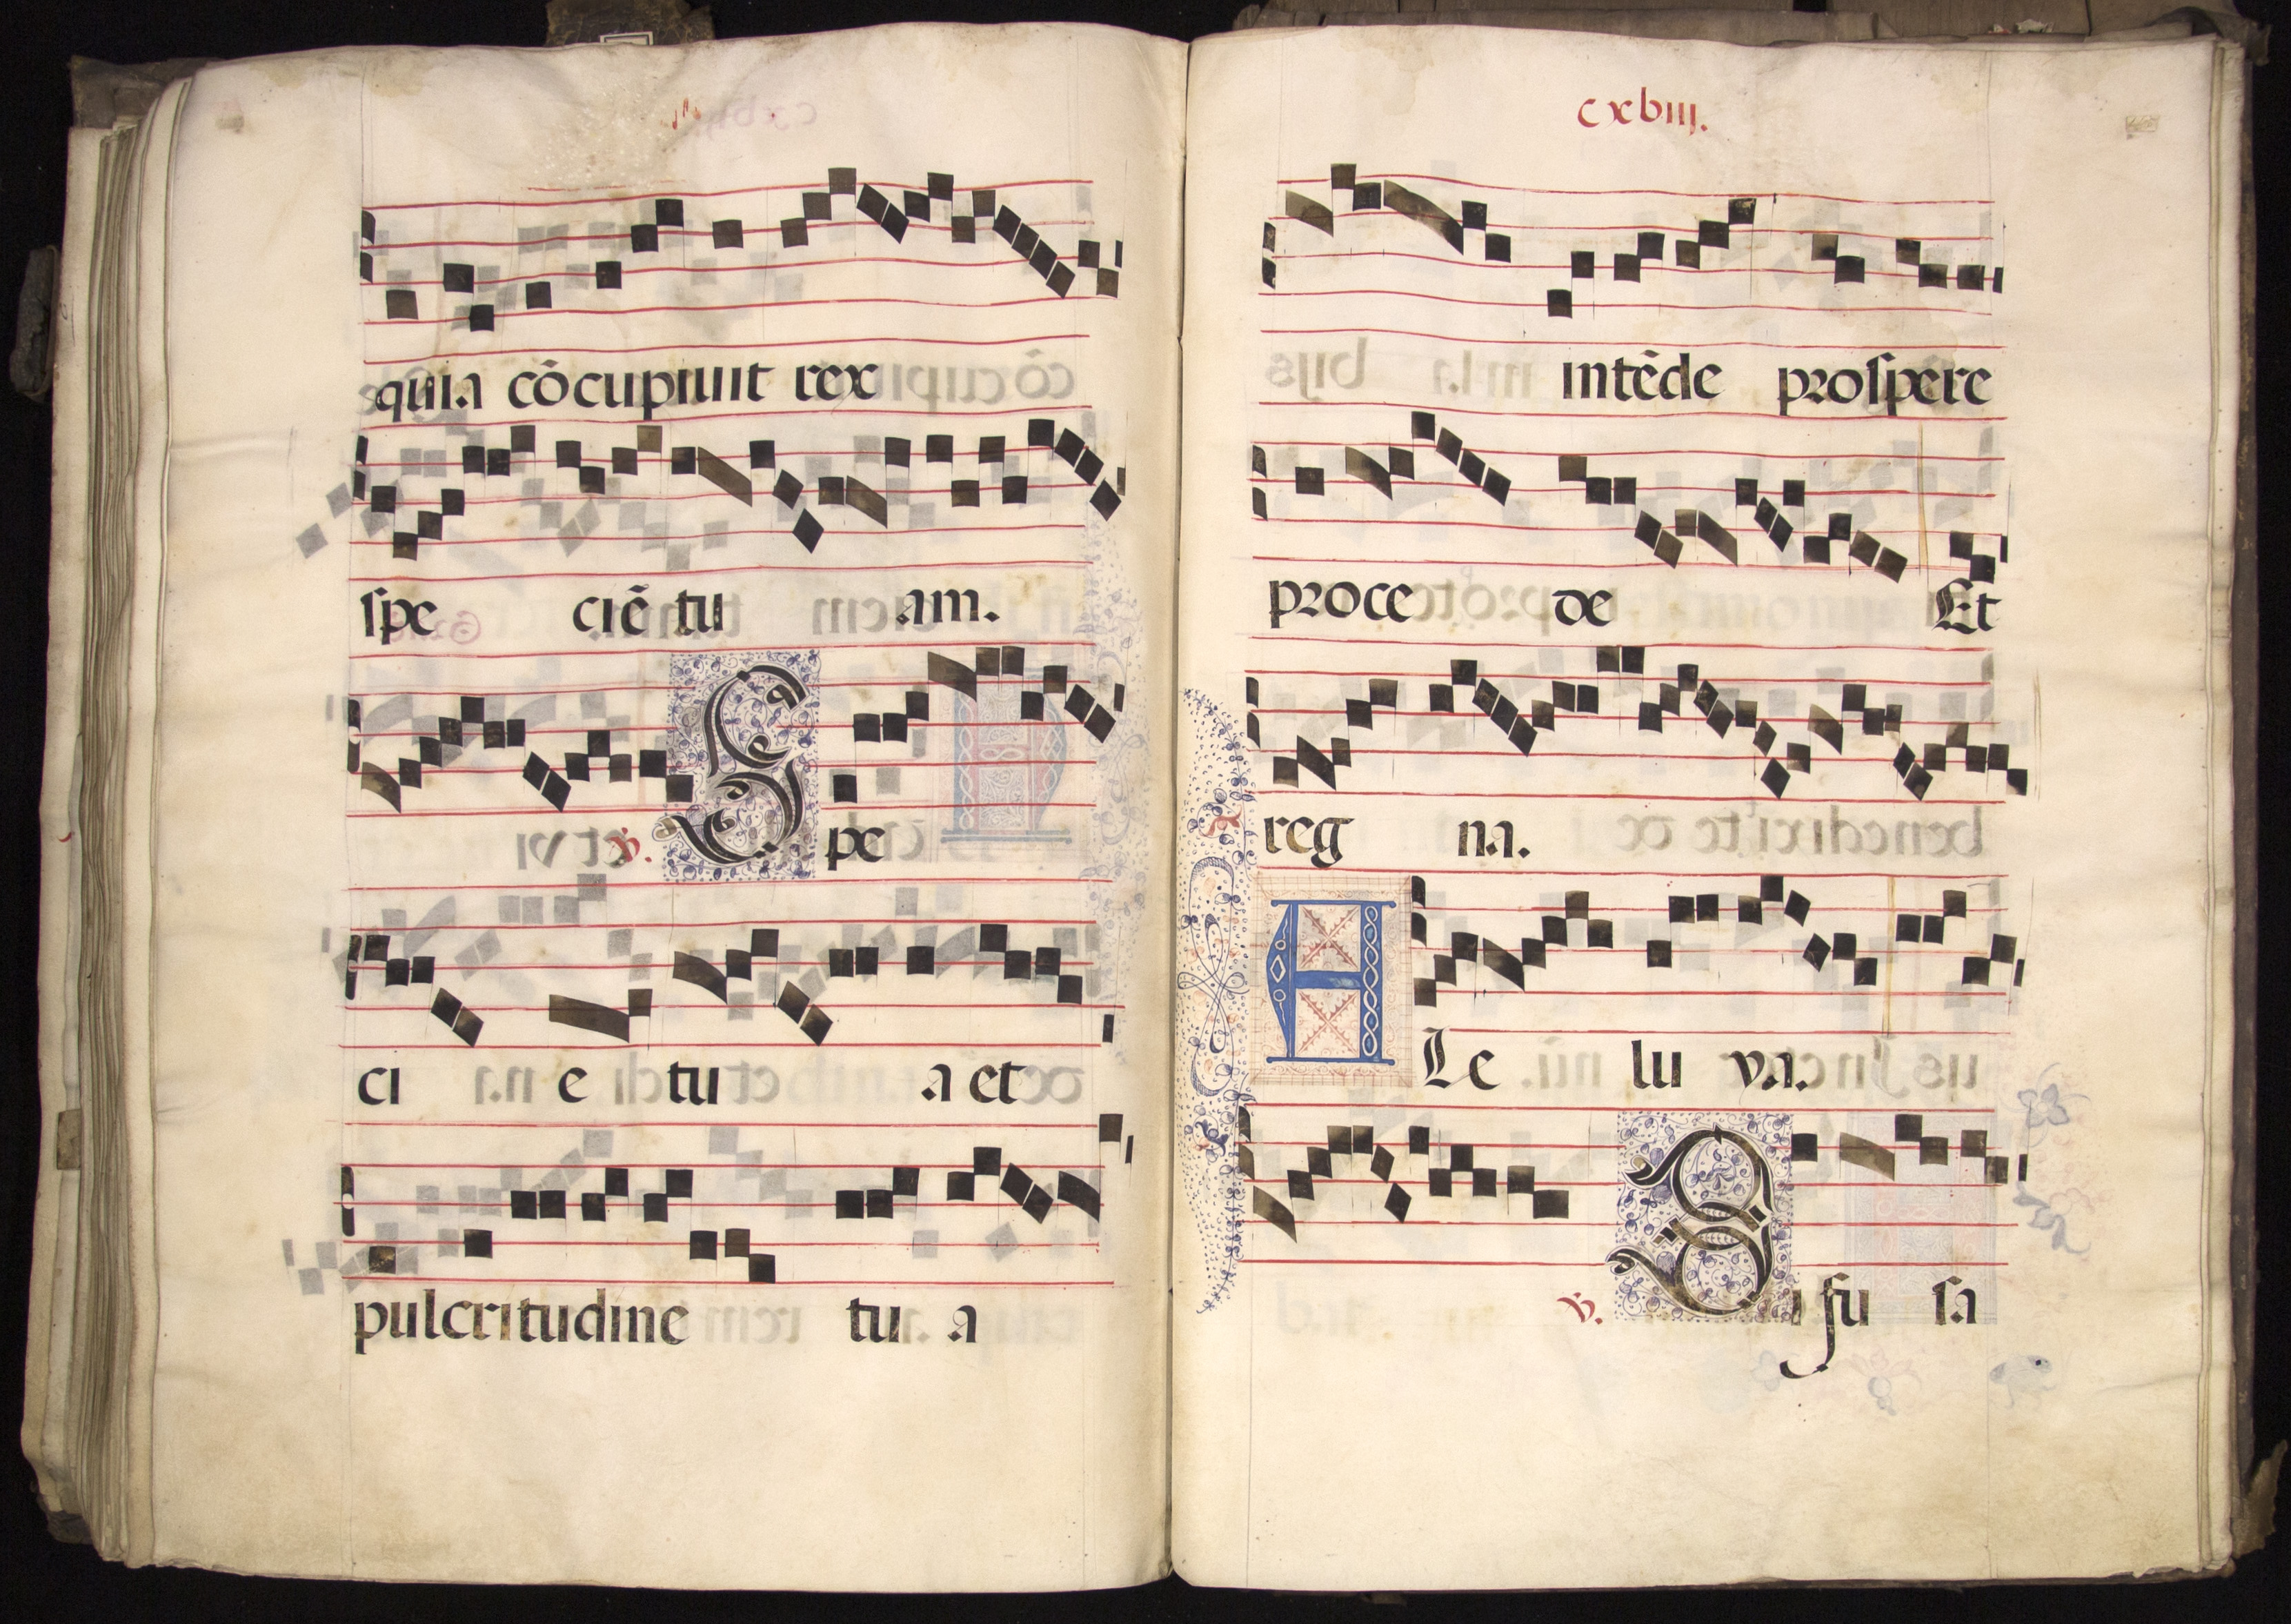 quia cõcupiuit rex
ſpe ciẽ tu am.
v. Spe
ci e tu a et
pulcritudine tu a
cxbiij.
intẽde proſpere
proce de Et
reg na.
ALe lu ya.
v. Diffu ſa